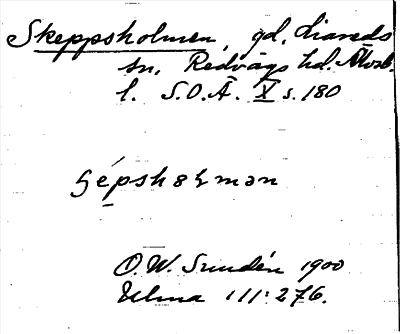 Skeppsholmen, gd, Liareds
sn, Redvägs hd. Älvsb.
l. S.O.Ä. X s. 180
O. W. Sundén 1900
Ulma 111:276.